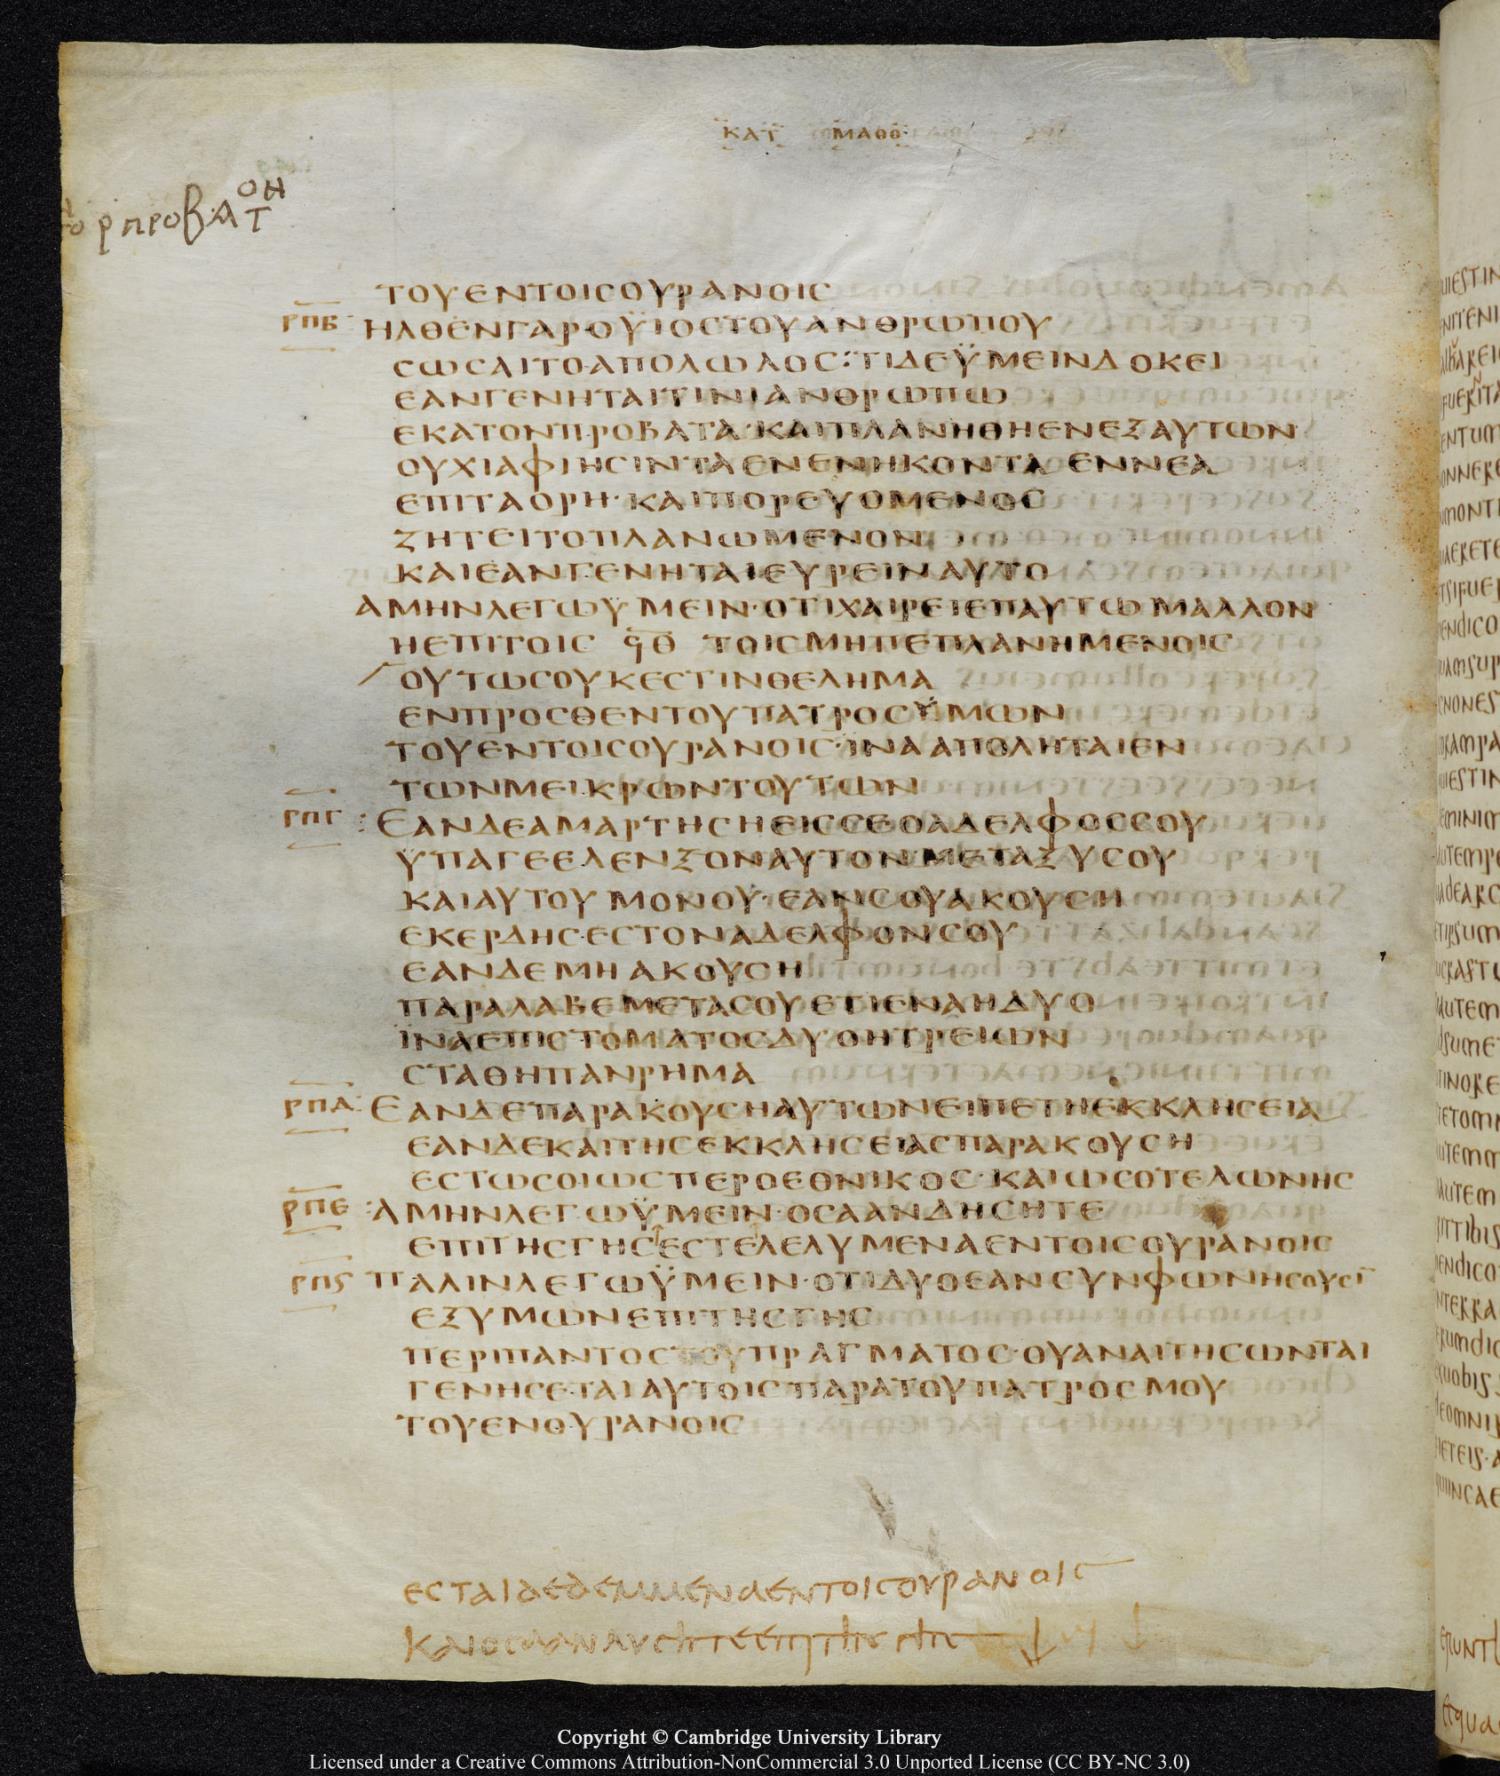 ΚΑΤ ΜΑΘΘ
ΤΟΥΕΝΤΟΙCΟΥΡΑΝΟΙC
ΡΠΒ ΗΛΘΕΝΓΑΡΟΫΙΟCΤΟΥΑΝΘΡΩΠΟΥ
CΩCΑΙΤΟΑΠΟΛΩΛΟC:ΤΙΔΕΫΜΕΙΝΔΟΚΕΙ
ΕΑΝΓΕΝΗΤΑΙΤΙΝΙΑΝΘΡΩΠΩ
ΕΚΑΤΟΝΠΡΟΒΑΤΑ·ΚΑΙΠΛΑΝΗΘΗΕΝΕΞΑΥΤΩΝ
ΟΥΧΙΑΦΙΗCΙΝΤΑΕΝΕΝΗΚΟΝΤΑ ΕΝΝΕΑ
ΕΠΙΤΑΟΡΗ·ΚΑΙΠΟΡΕΥΟΜΕΝΟC
ΖΗΤΕΙΤΟΠΛΑΝΩΜΕΝΟΝ
ΚΑΙΕΑΝΓΕΝΗΤΑΙΕΥΡΕΙΝΑΥΤΟ
ΑΜΗΝΛΕΓΩΫΜΕΙΝ·ΟΤΙΧΑΙΡΕΙΕΠΑΥΤΩΜΑΛΛΟΝ
ΗΕΠΙΤΟΙC ϥΘ ΤΟΙCΜΗΠΕΠΛΑΝΗΜΕΝΟΙC
ΟΥΤΩCΟΥΚΕCΤΙΝΘΕΛΗΜΑ
ΕΝΠΡΟCΘΕΝΤΟΥΠΑΤΡΟCΫΜΩΝ
ΤΟΥΕΝΤΟΙCΟΥΡΑΝΟΙC·ΪΝΑΑΠΟΛΗΤΑΙΕΝ
ΤΩΝΜΕΙΚΡΩΝΤΟΥΤΩΝ
ΡΠΓ :ΕΑΝΔΕΑΜΑΡΤΗCΗΕΙCCΕΟΑΔΕΛΦΟCCΟΥ
ΫΠΑΓΕΕΛΕΝΞΟΝΑΥΤΟΝΜΕΤΑΞΥCΟΥ
ΚΑΙΑΥΤΟΥΜΟΝΟΥ·ΕΑΝCΟΥΑΚΟΥCΗ
ΕΚΕΡΔΗCΕCΤΟΝΑΔΕΛΦΟΝCΟΥ
ΕΑΝΔΕΜΗΑΚΟΥCΗ
ΠΑΡΑΛΑΒΕΜΕΤΑCΟΥΕΤΙΕΝΑΗΔΥΟ
ΪΝΑΕΠΙCΤΟΜΑΤΟCΔΥΟΗΤΡΕΙΩΝ
CΤΑΘΗΠΑΝΡΗΜΑ
ΡΠΔ: ΕΑΝΔΕΠΑΡΑΚΟΥCΗΑΥΤΩΝΕΙΠΕΤΗΕΚΚΛΗCΕΙΑ
ΕΑΝΔΕΚΑΙΤΗCΕΚΚΛΗCΕΙΑCΠΑΡΑΚΟΥCΗ
ΕCΤΩCΟΙΩCΠΕΡΟΕΘΝΙΚΟC·ΚΑΙΩCΟΤΕΛΩΝΗC
ΡΠΕ :ΑΜΗΝΛΕΓΩΫΜΕΙΝ·ΟCΑΑΝΔΗCΗΤΕ
ΕΠΙΤΗCΓΗCΕCΤΕΛΕΛΥΜΕΝΑΕΝΤΟΙCΟΥΡΑΝΟΙC
ΡΠS ΠΑΛΙΝΛΕΓΩΫΜΕΙΝ·ΟΤΙΔΥΟΕΑΝCΥΝΦΩΝΗCΟΥCΙ
ΕΞΥΜΩΝΕΠΙΤΗCΓΗC
ΠΕΡΙΠΑΝΤΟCΤΟΥΠΡΑΓΜΑΤΟC·ΟΥΑΝΑΙΤΗCΩΝΤΑΙ
ΓΕΝΗCΕΤΑΙΑΥΤΟΙCΠΑΡΑΤΟΥΠΑΤΡΟCΜΟΥ
ΤΟΥΕΝΟΥΡΑΝΟΙC
ΕCΤΑΙΔΕΔΕΜΜΕΝΑΕΝΤΟΙCΟΥΡΑΝΟΙC
Copyright © Cambridge University Library
Licensed under a Creative Commons Attribution-NonCommercial 3.0 Unported License (CC BY-NC 3.0)